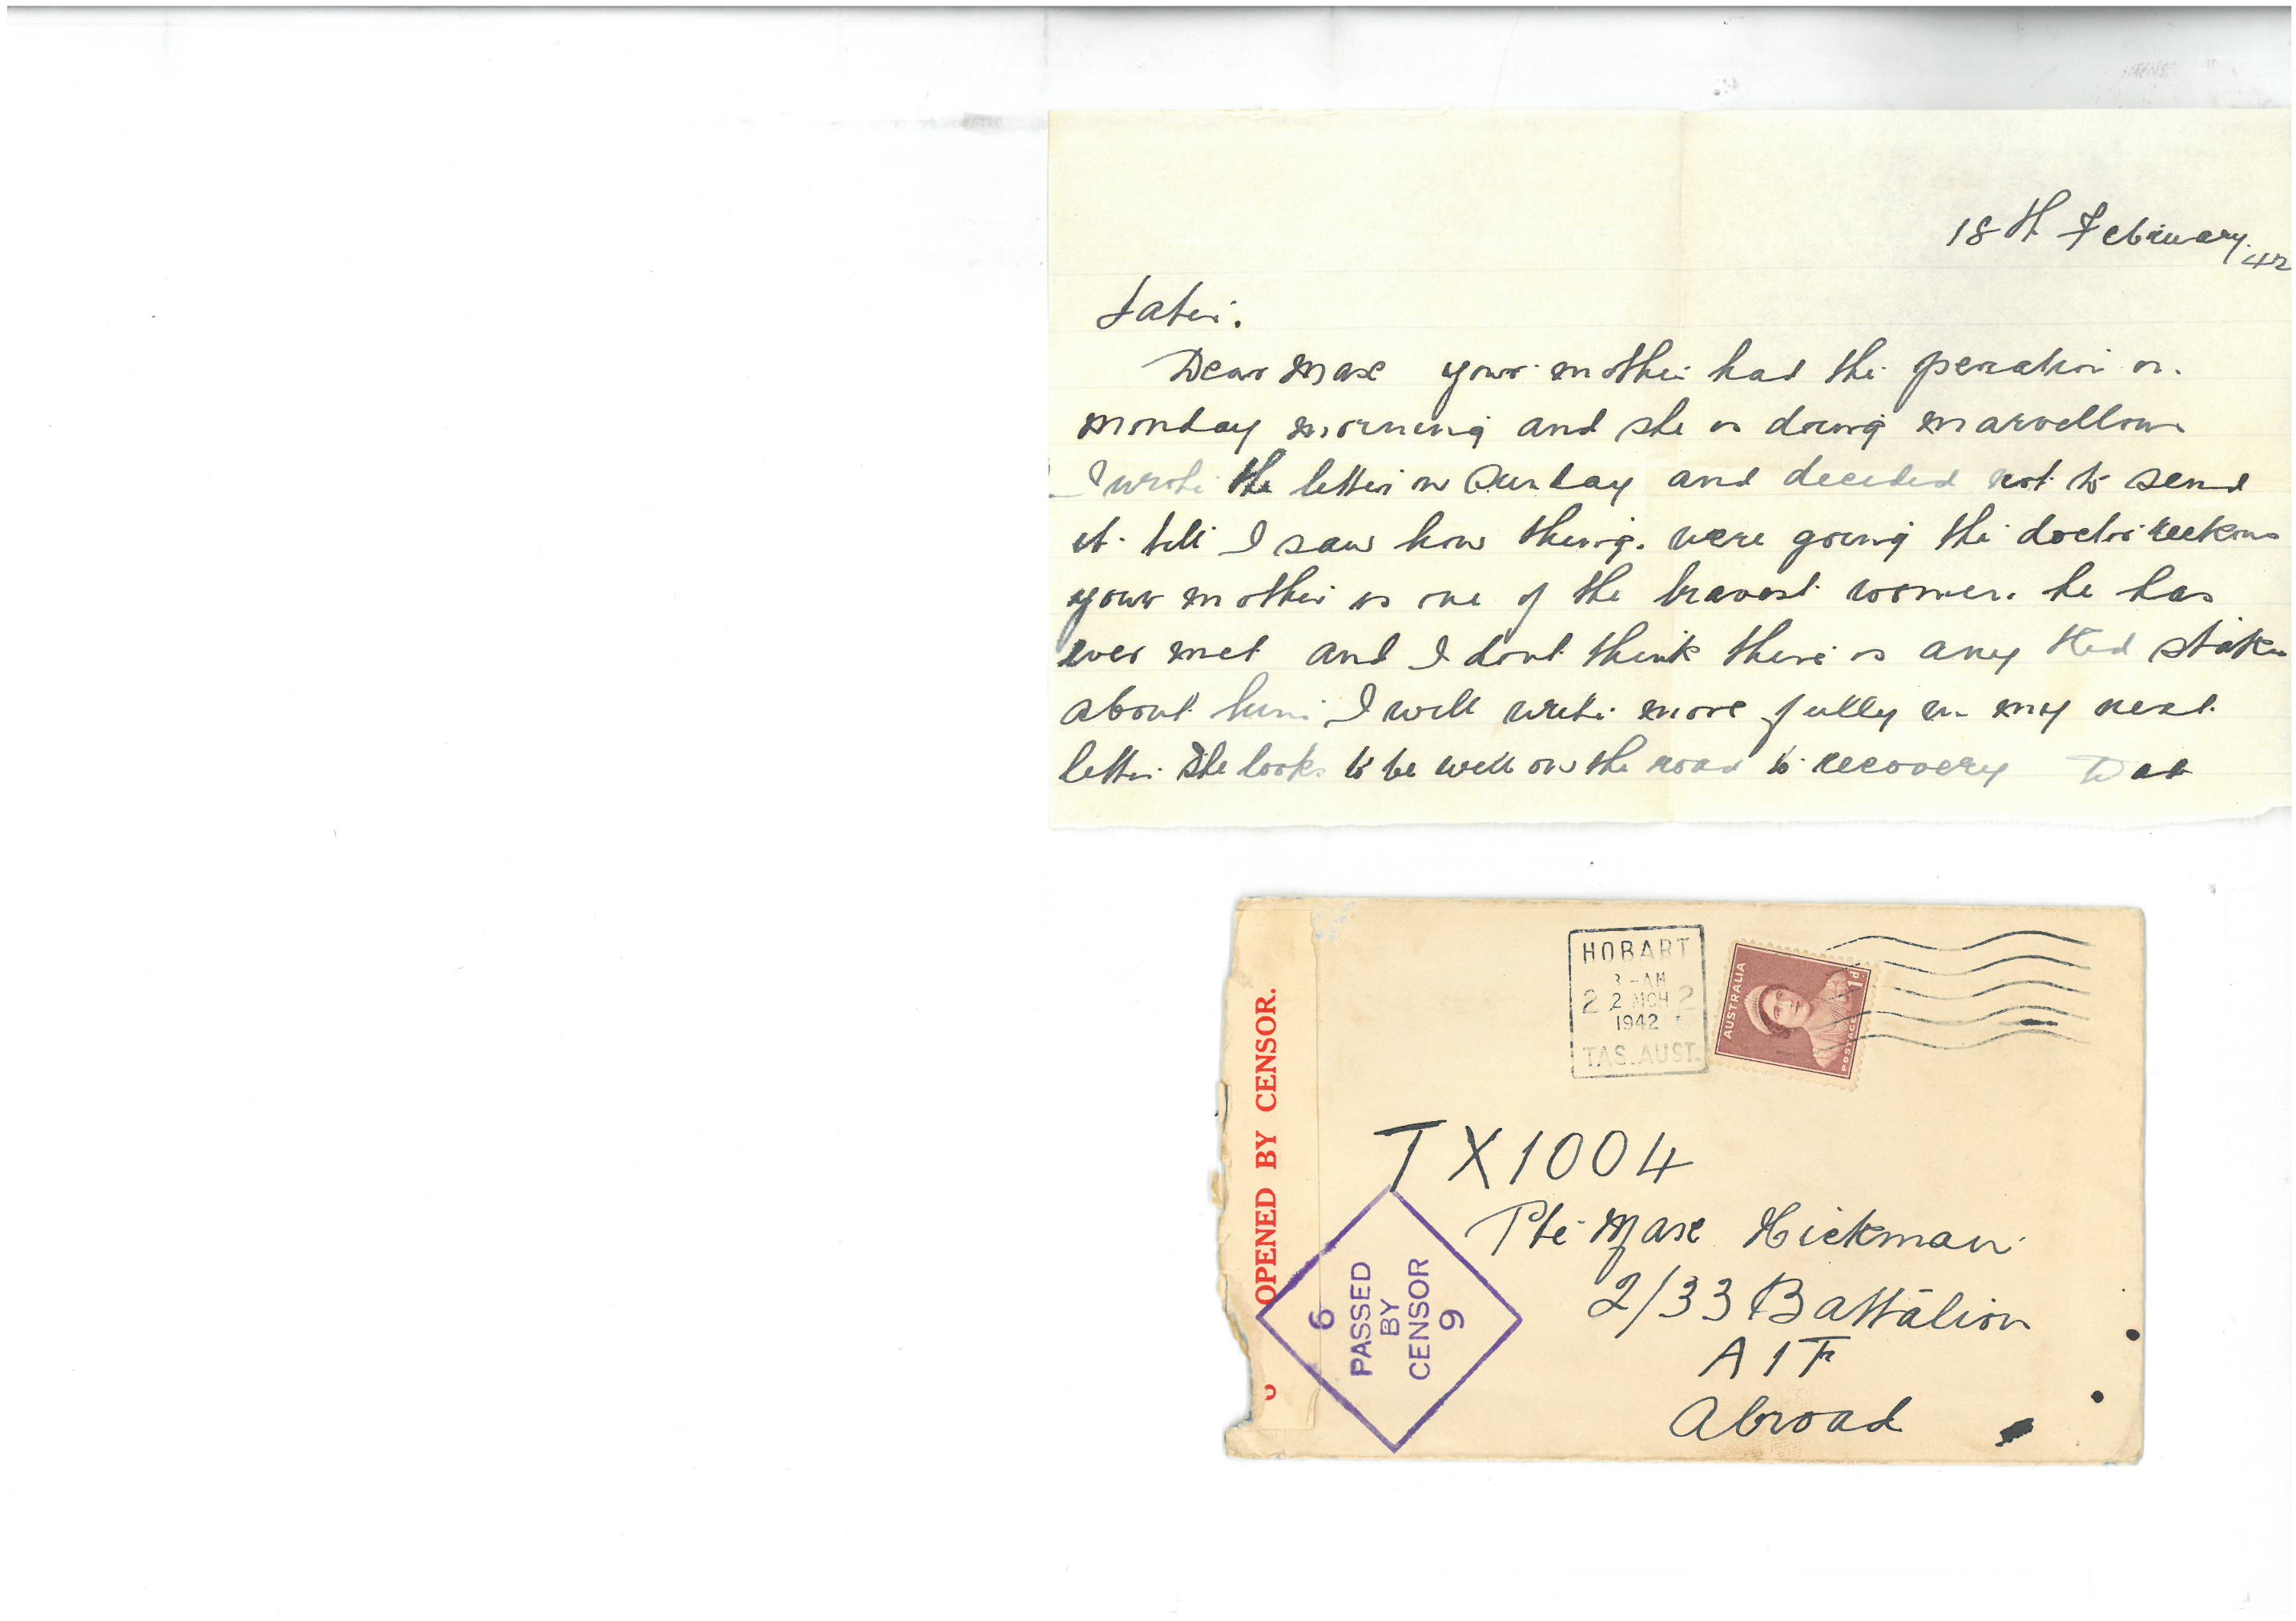 18th February.
42
Later.
Dear Max your mother had the operation on
Monday morning and she is doing marvellous
I wrote the letter on Sunday and decided not to send
it till I saw how things were going the doctor reckons
your mother is one of the bravest women he has
ever met and I dont think there is any
about him I will write more fully in my next
letter She looks to be well on the road to recovery Dad
HOBART
3-AM
2 2 MCH 2
1942
TAS. AUST.
AUSTRALIA
1D.
POSTAGE
OPENED BY CENSOR.
TX1004
Pte Max Hickman
2/33 Battalion
AIF
Abroad
6
PASSED
BY
CENSOR
9